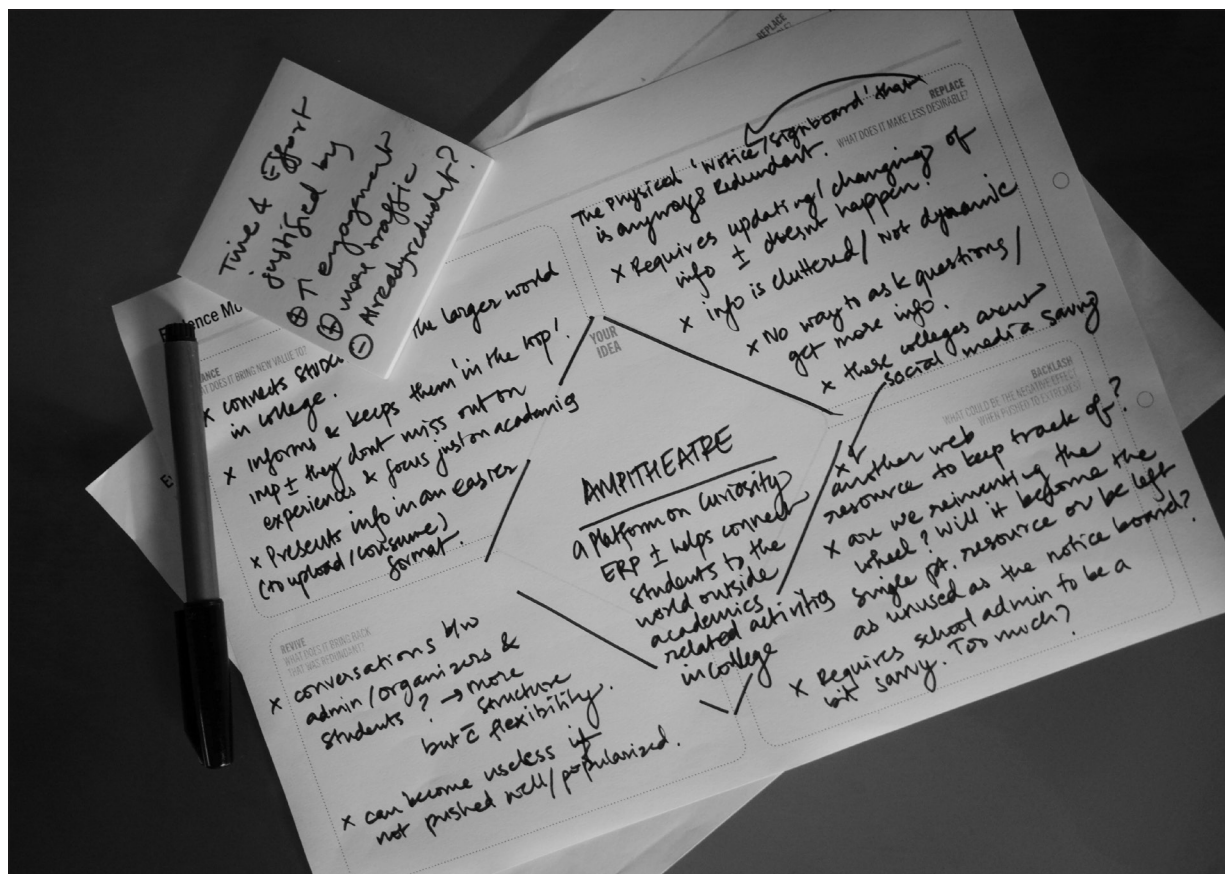 Time & Effort
justified by
⊕ ↑ engagement
⊕ more traffic
⊖ Already redudat?
REPLACE
REPLACE
WHAT DOES IT MAKE LESS DESIRABLE?
The Physical 'notice/signboard' that
is anyways Redundant.
x Requires updating/changing of
info ± doesnt happen!
x info is cluttered/not dynamic
x No way to ask questions/
get more info.
x these colleges arent
social media savvy
ence Mo
ANCE
AT DOES IT BRING NEW VALUE TO?
x connects stude the larger world
in college.
x Informs & keeps them 'in the loop'.
imp ± they dont miss out on
experiences & focus just on academics
x Presents info in an easier
(to upload/consume)
format.
YOUR
IDEA
AMPITHEATRE
a platform on curiosity
ERP ± helps connect
students to the
world outside
academics
related activities
in college
BACKLASH
WHAT COULD BE THE NEGATIVE EFFECT
WHEN PUSHED TO EXTREMES?
x
another web
resource to keep track of?
x are we reinventing the
wheel? Will it become the
single pt. resource or be left
as unused as the notice board?
x Requires school admin to be a
bit savvy. Too much?
REVIVE
WHAT DOES IT BRING BACK
THAT WAS REDUNDANT?
x conversations b/w
admin/organizers &
students? → more
structure
but c̄ flexibility.
x can become useless if
not pushed well/popularized.